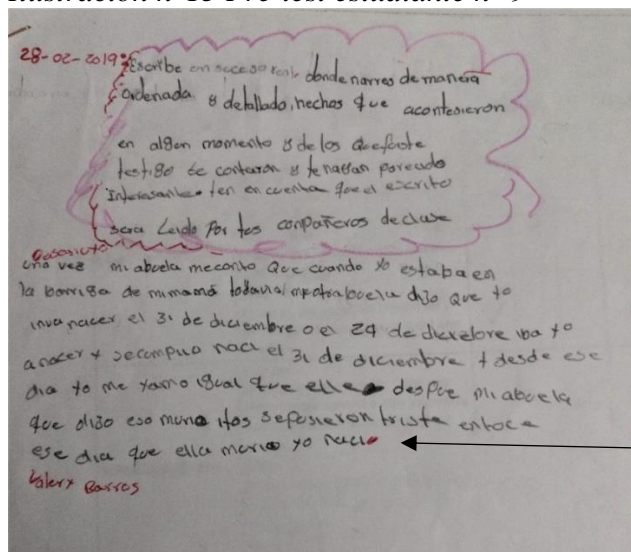 Ilustración n° 15 Pre-test estudiante n° 9
28-02-2019: Escribe en suceso real donde narres de manera
ordenada y detallado, hechos que acontesieron
en algun momento y de los que fuiste
testigo te contaron y te hallan parecido
Interesante ten en cuenta que el escrito
sera Leido Por tus conpañeros de clase
una vez mi abuela meconto que cuando yo estaba en
la barriga de mi mamá todavia mi otra abuela dijo que yo
inva nacer el 31 de diciembre o el 24 de diciembre iba yo
a nacer y secumpuo naci el 31 de diciembre y desde ese
dia yo me yamo igual que ella despue mi abuela
que dijo eso murio itos sepusieron triste entoce
ese dia que ella murio yo naci
Valery Barros